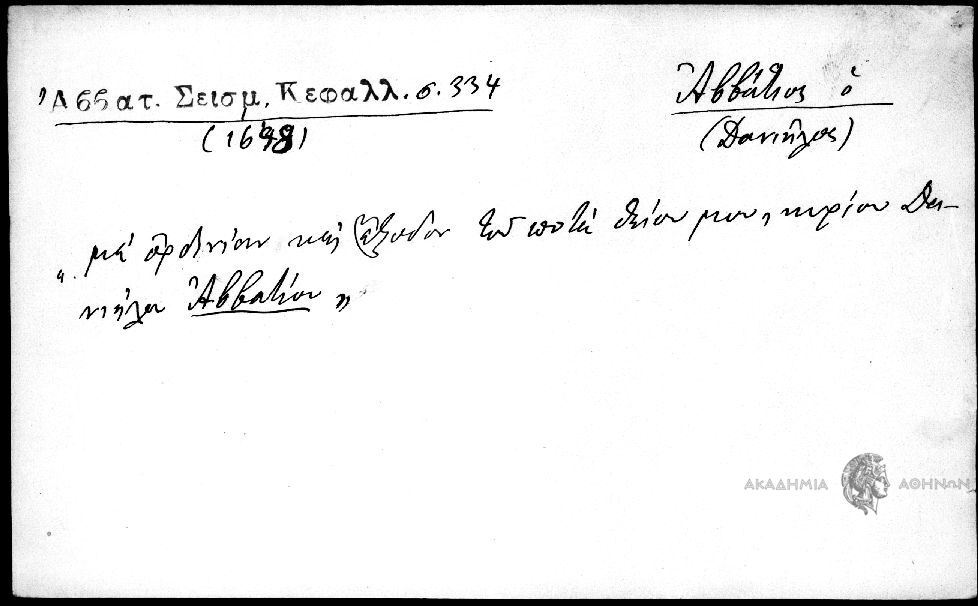 Ἀββατ. Σεισμ. Κεφαλλ. σ. 334
(1698)
Ἀββάτιος ὁ
(Δανιήλος)
„ μὲ ὀρδινίαν καὶ ἔξοδον τοῦ ποτὲ θείου μου, κυρίου Δα-
νιήλου Ἀββατίου „
ΑΚΑΔΗΜΙΑ ΑΘΗΝΩΝ